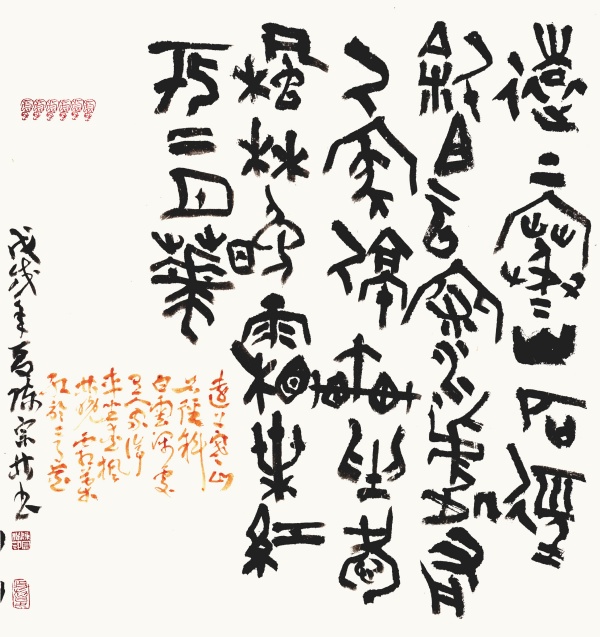 遠上寒山石徑
斜白雲深處有
人家停車坐愛
楓林晚霜葉紅
於二月花
遠上寒山
石徑斜
白雲深處
有人家停
車坐愛楓
林晚霜葉
紅於二月花
戊戌年夏陳宗书